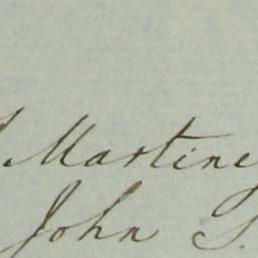 Martine
John S.